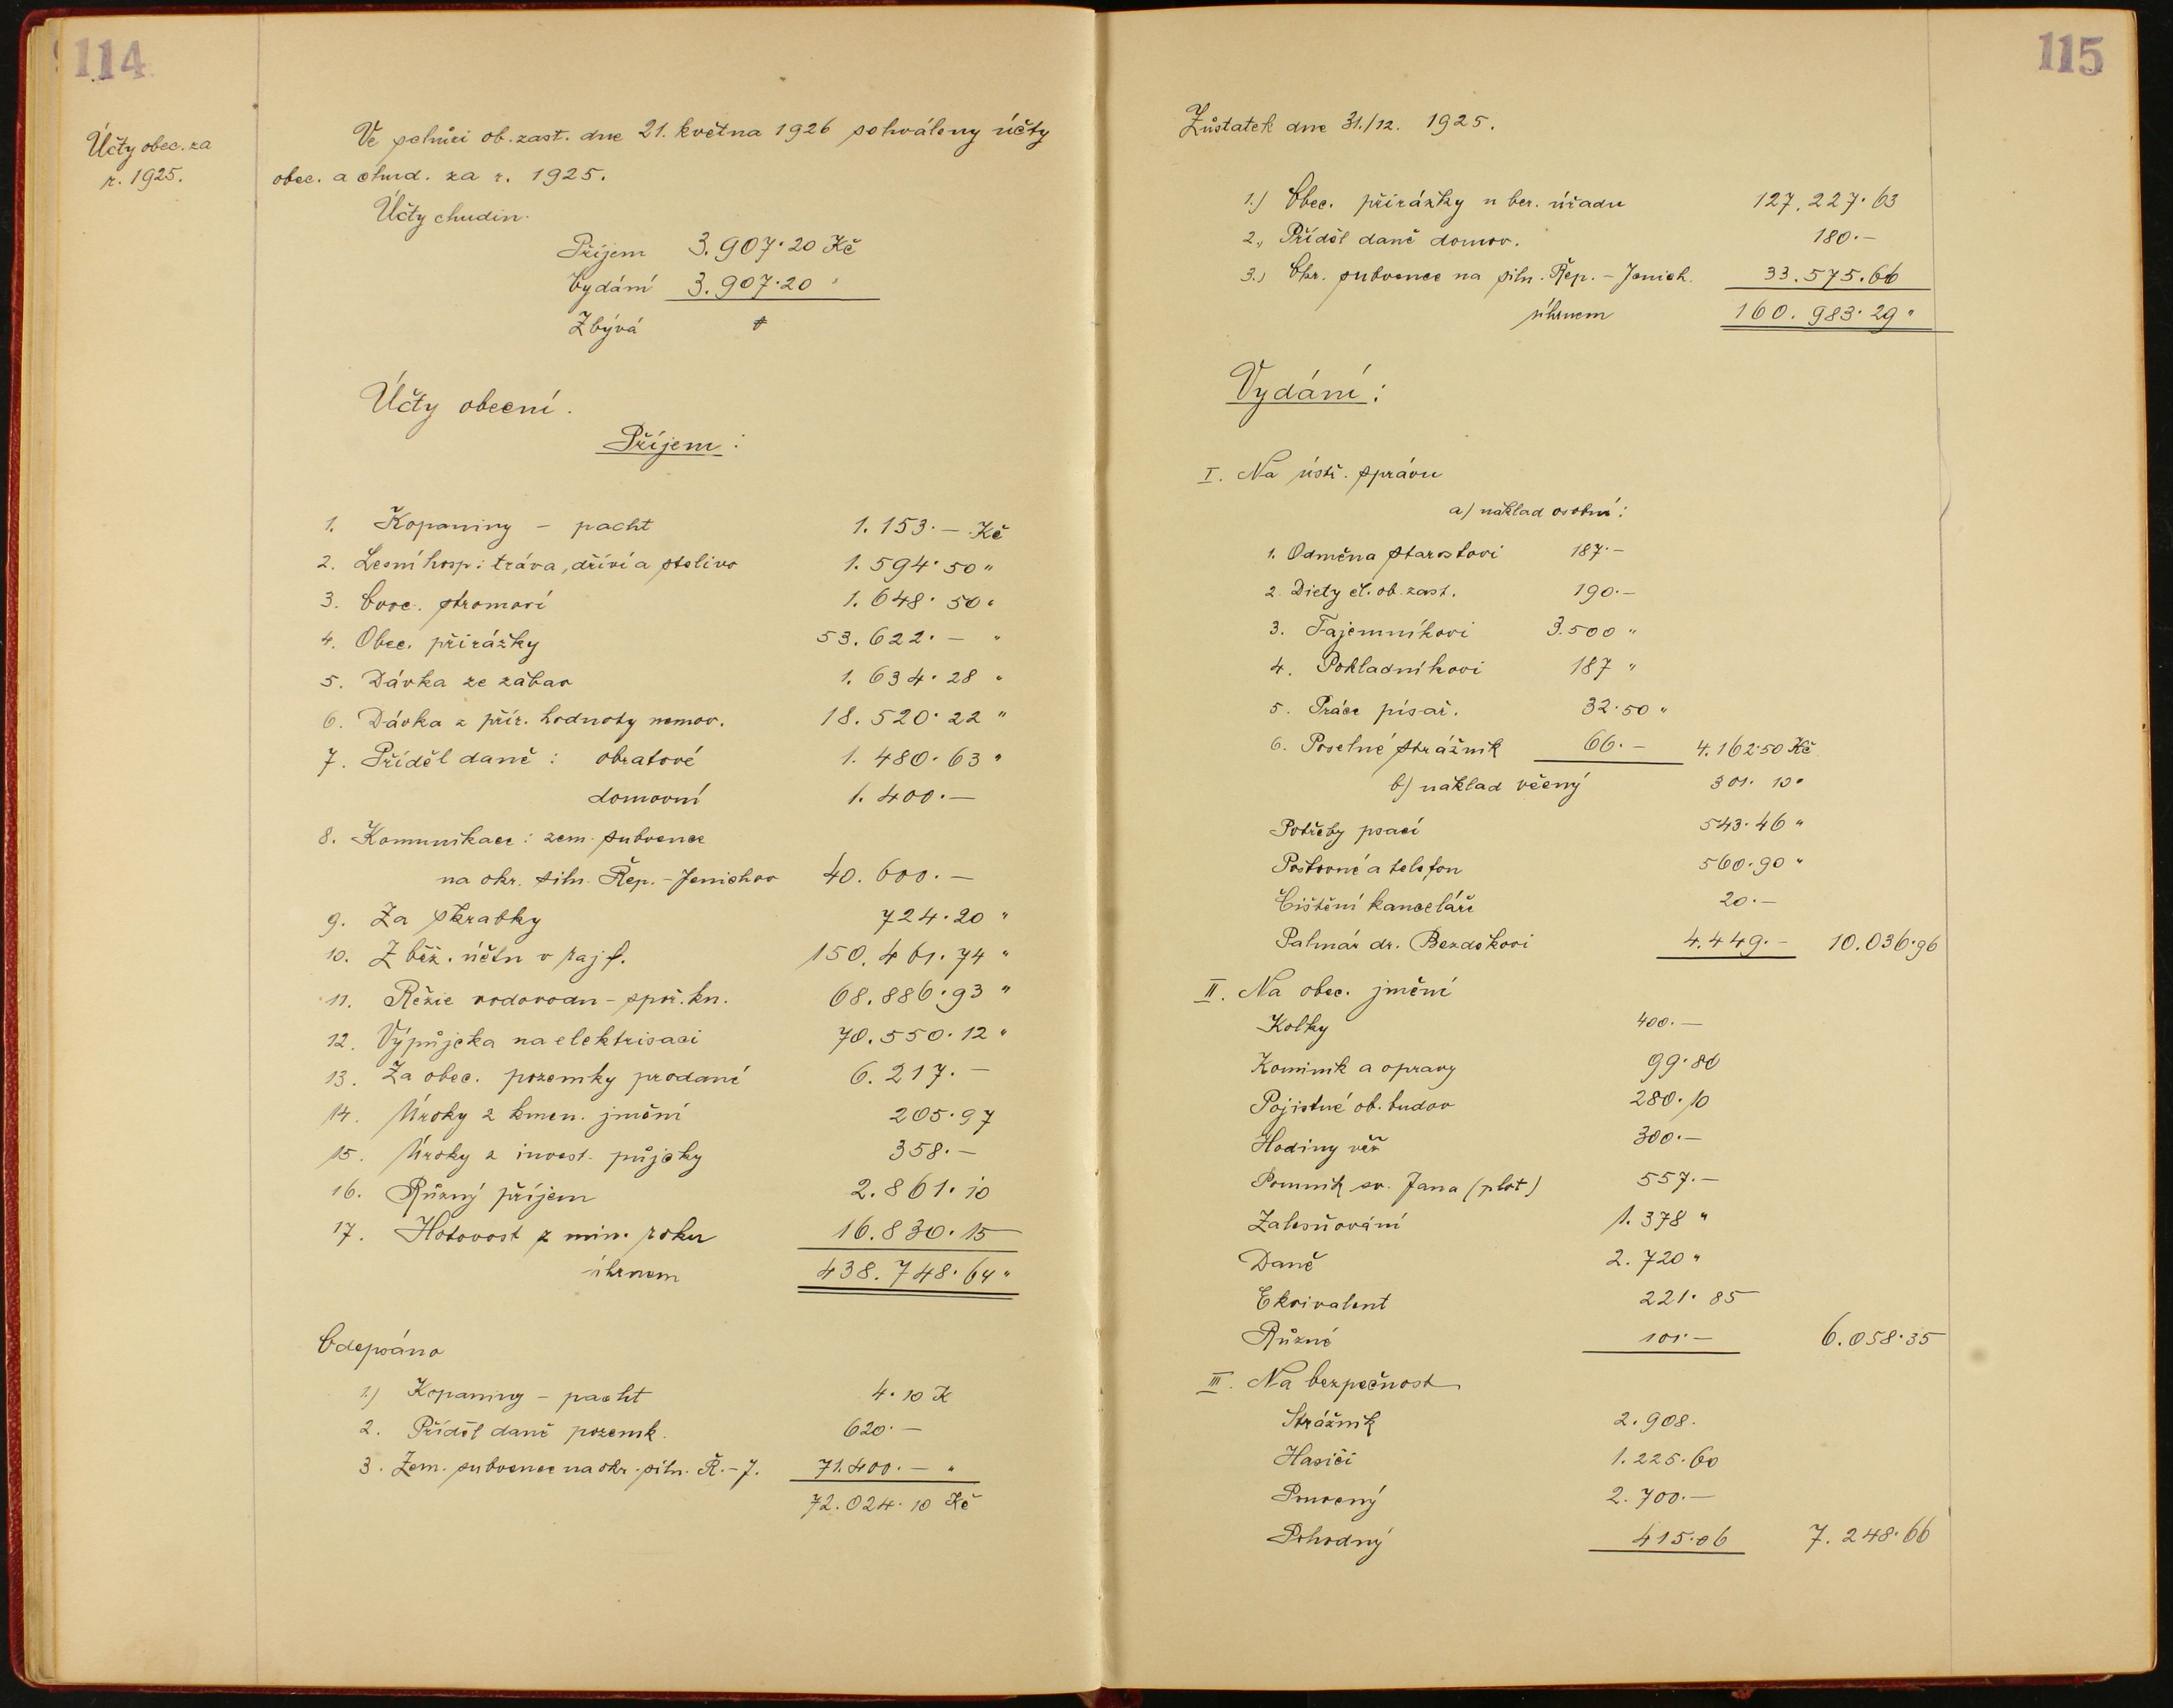 114
Účty obec. za
r. 1925.
Ve schůzi ob. zast. dne 21. května 1926 schváleny účty
obec. a chud. za r. 1925.
Účty chudin.
Příjem 3.907·20 Kč
Vydání 3.907·20 "
Zbývá
Účty obecní.
Příjem:
1. Kopaniny – pacht 1.153·— Kč
2. Lesní hosp: tráva, dříví a stelivo 1.594·50 "
3. Ovoc. stromoví 1.648·50 "
4. Obec. přirážky 53.622·— "
5. Dávka ze zábav 1.634·28 "
6. Dávka z přír. hodnoty nemov. 18.520·22 "
7. Příděl daně: obratové 1.480·63 "
domovní 1.400·—
8. Komunikace: zem. subvence
na okr. siln. Řep.–Jenichov 40.600·—
9. Za škrabky 724·20 "
10. Z běž. účtu v rajf. 150.461·74 "
11. Režie vodovodu – spoř. kn. 68.886·93 "
12. Výpůjčka na elektrisaci 70.550·12 "
13. Za obec. pozemky prodané 6.217·—
14. Úroky z kmen. jmění 205·97
15. Úroky z invest. půjčky 358·—
16. Různý příjem 2.861·10
17. Hotovost z min. roku 16.830·15
úhrnem 438.748·64 "
Odepsáno
1) Kopaniny – pacht 4·10 K
2. Příděl daně pozemk. 620·—
3. Zem. subvence na okr. siln. Ř.–J. 71.400·— "
72.024·10 Kč
115
Zůstatek dne 31./12. 1925.
1.) Obec. přirážky u ber. úřadu 127.227·63
2., Příděl daně domov. 180·—
3.) Okr. subvence na siln. Řep.–Jenich. 33.575·66
úhrnem 160.983·29 "
Vydání:
I. Na ústř. správu
a) náklad osobní:
1. Odměna starostovi 187·—
2. Diety čl. ob. zast. 190·—
3. Tajemníkovi 3.500 "
4. Pokladníkovi 187 "
5. Práce písař. 32·50 "
6. Poselné strážník 66·— 4.162·50 Kč
b) náklad věcný 301·10 "
Potřeby psací 543·46 "
Poštovné a telefon 560·90 "
Čištění kanceláře 20·—
Palmár dr. Bezděkovi 4.449·— 10.036·96
II. Na obec. jmění
Kolky 400·—
Kominík a opravy 99·80
Pojistné ob. budov 280·10
Hodiny věž 300·—
Pomník sv. Jana (plot) 557·—
Zalesňování 1.378 "
Daně 2.720 "
Ekvivalent 221·85
Různé 101·— 6.058·35
III. Na bezpečnost
Strážník 2.908.
Hasiči 1.225·60
Ponocný 2.700·—
Pohodný 415·06 7.248·66